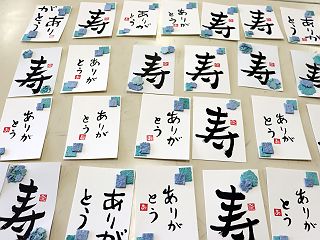 寿
ありが
とう
ありが
とう
寿
寿
ありが
とう
寿
ありが
とう
寿
ありが
とう
寿
寿
ありが
とう
ありが
とう
ありが
とう
寿
ありが
とう
寿
ありが
とう
ありが
とう
寿
ありが
とう